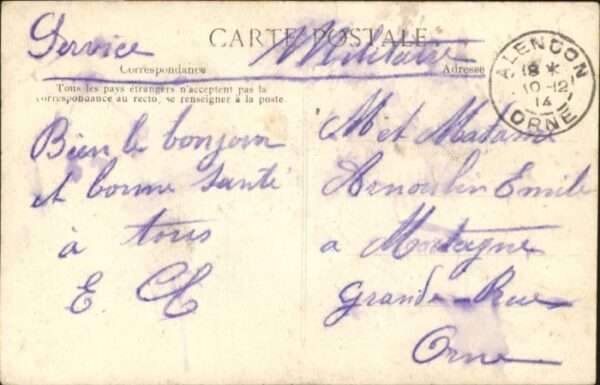 CARTE POSTALE
Service Militaire
Correspondance
Adresse
Tous les pays étrangers n'acceptent pas la
correspondance au recto, se renseigner à la poste.
ALENCON
18 *
10-12
14
ORNE
Bien le bonjour
et bonne santé
à tous
E.
M et Madame
Arnoulin Emile
a Mortagne
Grande-Rue
Orne